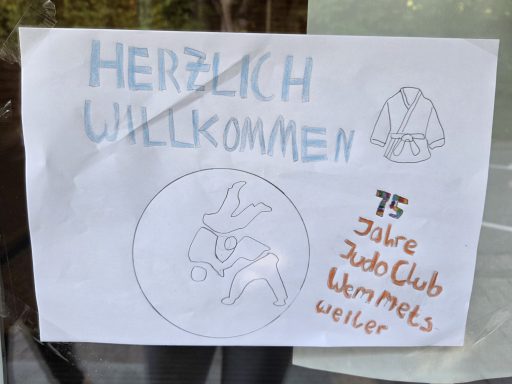 HERZLICH
WILLKOMMEN
75
Jahre
Judo Club
Wemmets-
weiler